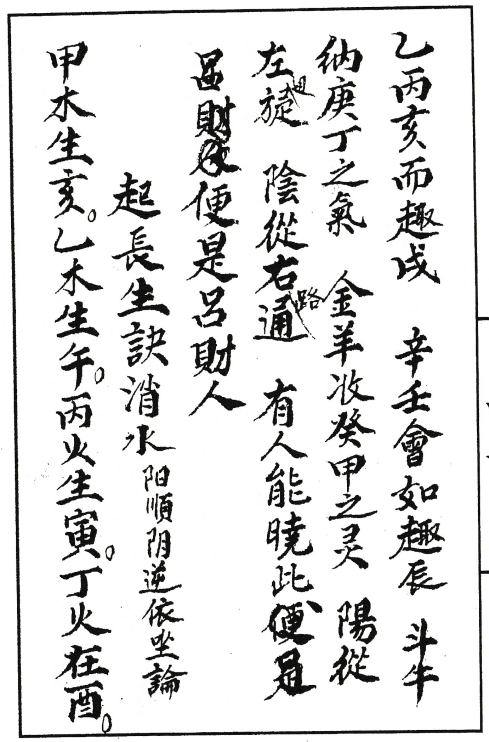 乙丙亥而趣戌　辛壬會如趣辰　斗牛
納庚丁之氣　金羊收癸甲之灵　陽從
左旋　陰從右通路　有人能曉此便是
呂財便是呂財人
起長生訣消水阳順阴逆依坐論
甲木生亥。乙木生午。丙火生寅。丁火在酉。